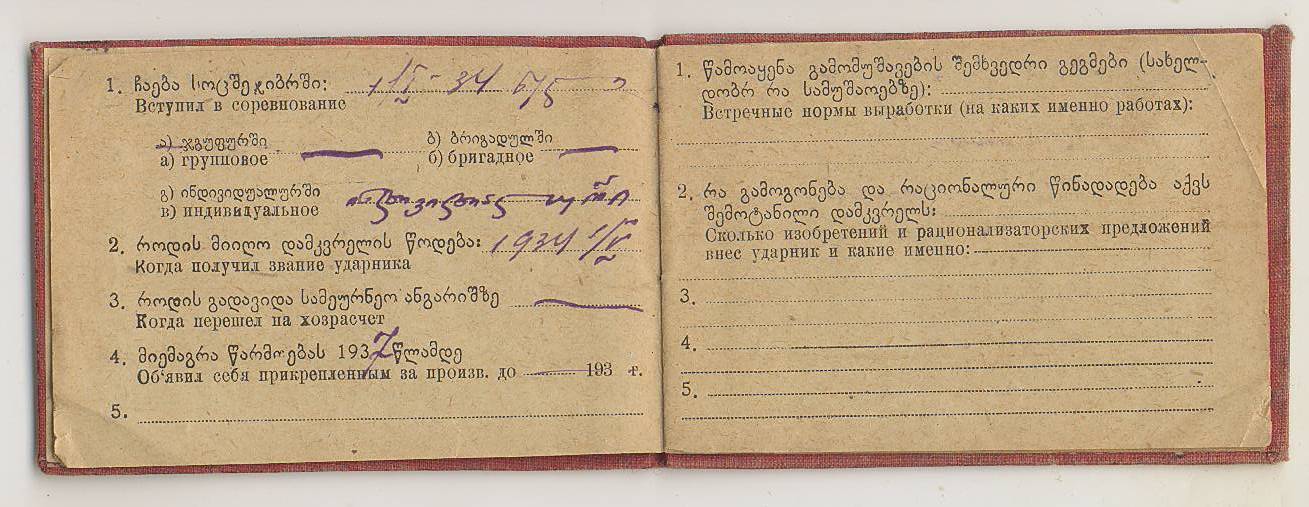 1. ჩაება სოცშეჯიბრში: 1/V - 34
Вступил в соревнование
ა) ჯგუფურში
ბ) ბრიგადულში
а) групповое
б) бригадное
გ) ინდივიდუალურში
в) индивидуальное
2. როდის მიიღო დამკვრელის წოდება: 1934 1/V
Когда получил звание ударника
3. როდის გადავიდა სამეურნეო ანგარიშზე
Когда перешел на хозрасчет
4. მიემაგრა წარმოებას 1937 წლამდე
Об‘явил себя прикрепленным за произв. до 193 г.
5.
1. წამოაყენა გამომუშავების შემხვედრი გეგმები (სახელ-
დობრ რა სამუშაოებზე):
Встречные нормы выработки (на каких именно работах):
2. რა გამოგონება და რაციონალური წინადადება აქვს
შემოტანილი დამკვრელს:
Сколько изобретений и рационализаторских предложений
внес ударник и какие именно:
3.
4.
5.